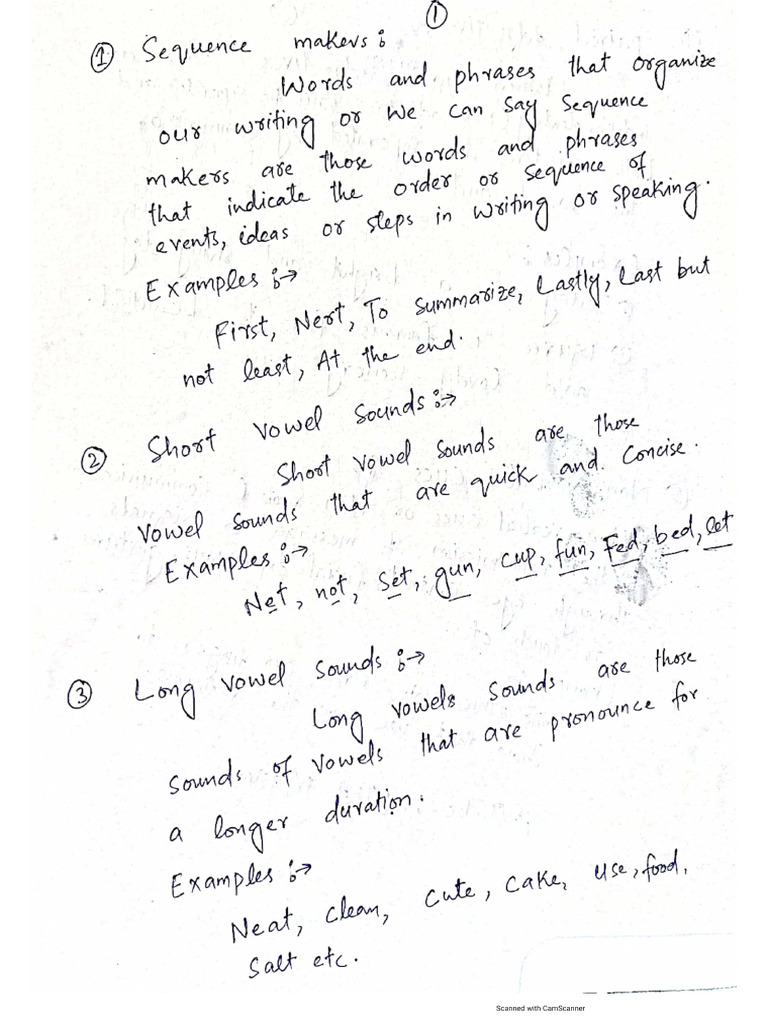 ①
① Sequence makers :
Words and phrases that organize
our writing or we can say sequence
makers are those words and phrases
that indicate the order or sequence of
events, ideas or steps in writing or speaking.
Examples :→
First, Next, To summarize, Lastly, Last but
not least, At the end.
② Short vowel sounds :→
Short vowel sounds are those
vowel sounds that are quick and concise.
Examples :→
Net, not, set, gun, cup, fun, Fed, bed, let
③ Long vowel sounds :→
Long vowels sounds are those
sounds of vowels that are pronounce for
a longer duration.
Examples :→
Neat, clean, cute, cake, use, food,
salt etc.
Scanned with CamScanner